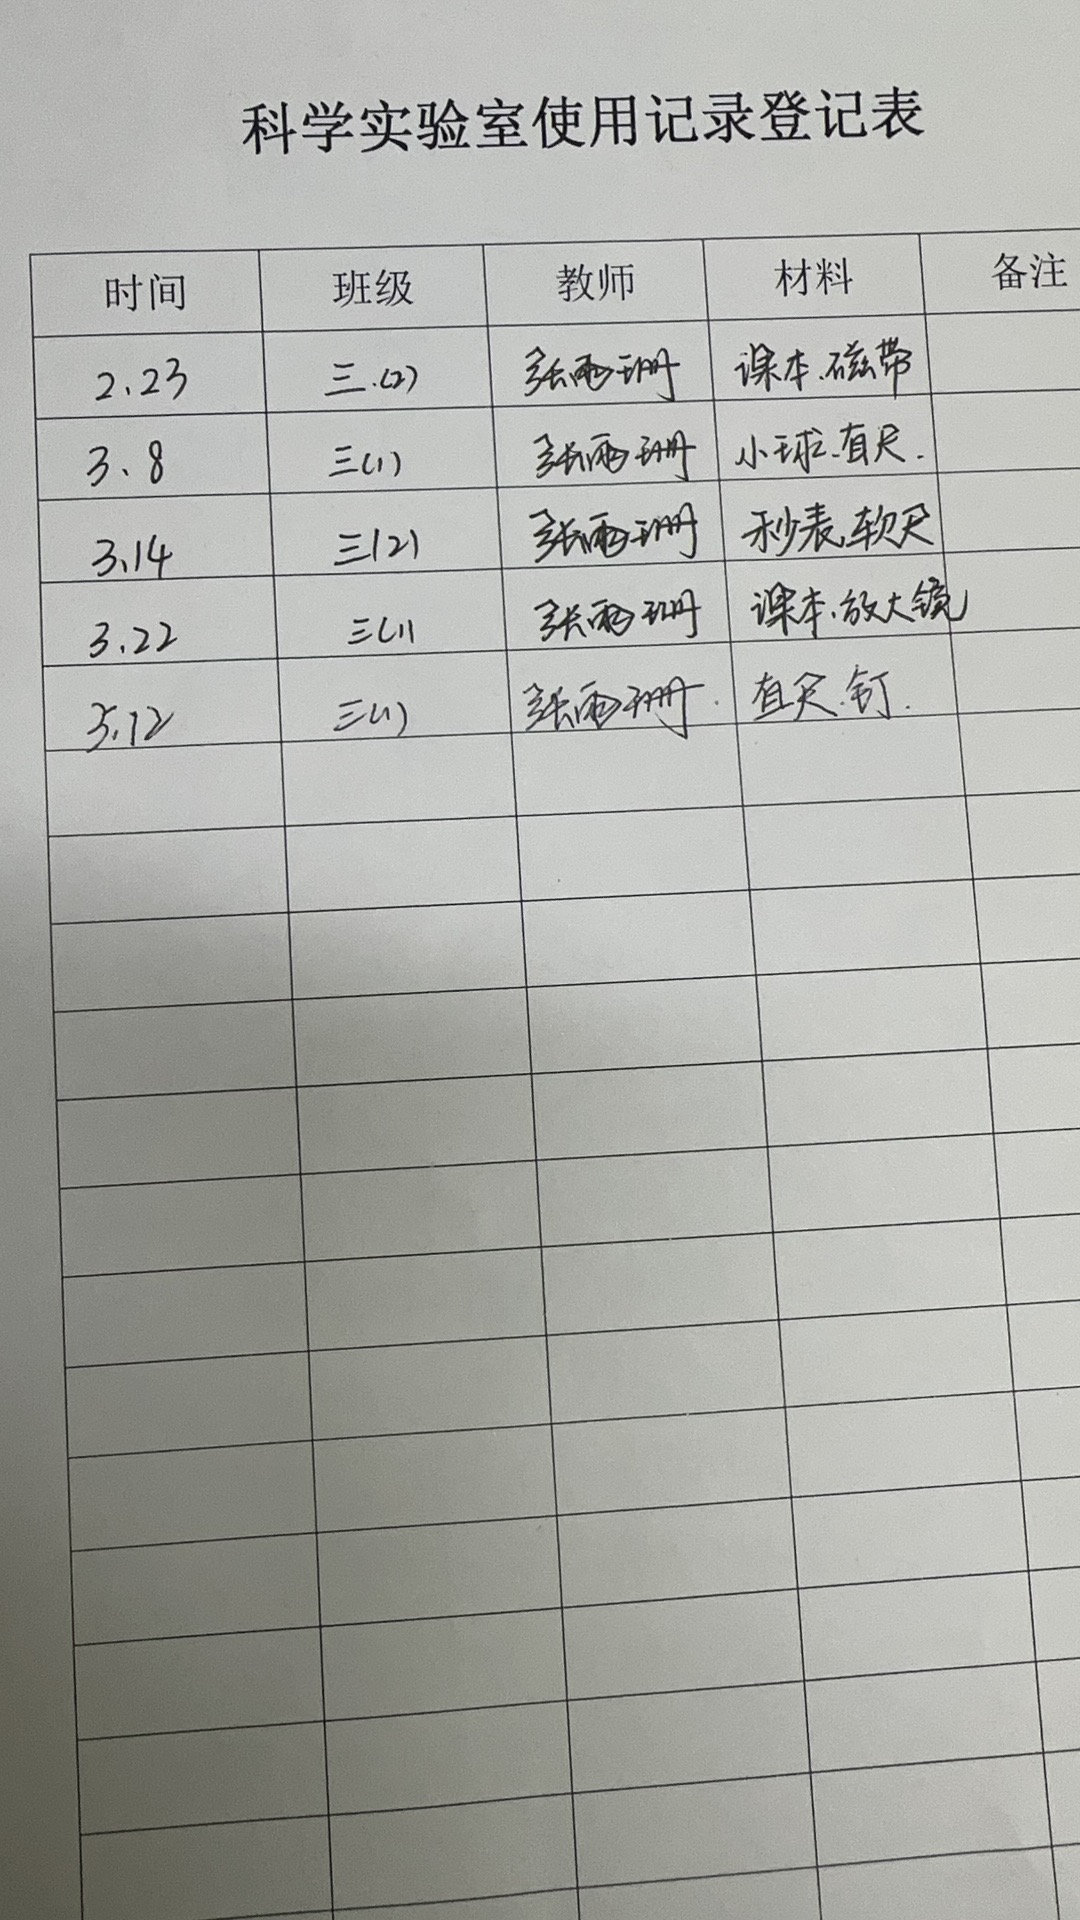 科学实验室使用记录登记表
时间 班级 教师 材料 备注
2.23 三.(2) 张雨珊 课本.磁带
3.8 三(1) 张雨珊 小球.直尺.
3.14 三(2) 张雨珊 秒表.软尺
3.22 三(1) 张雨珊 课本.放大镜
5.12 三(1) 张雨珊. 直尺.钉.